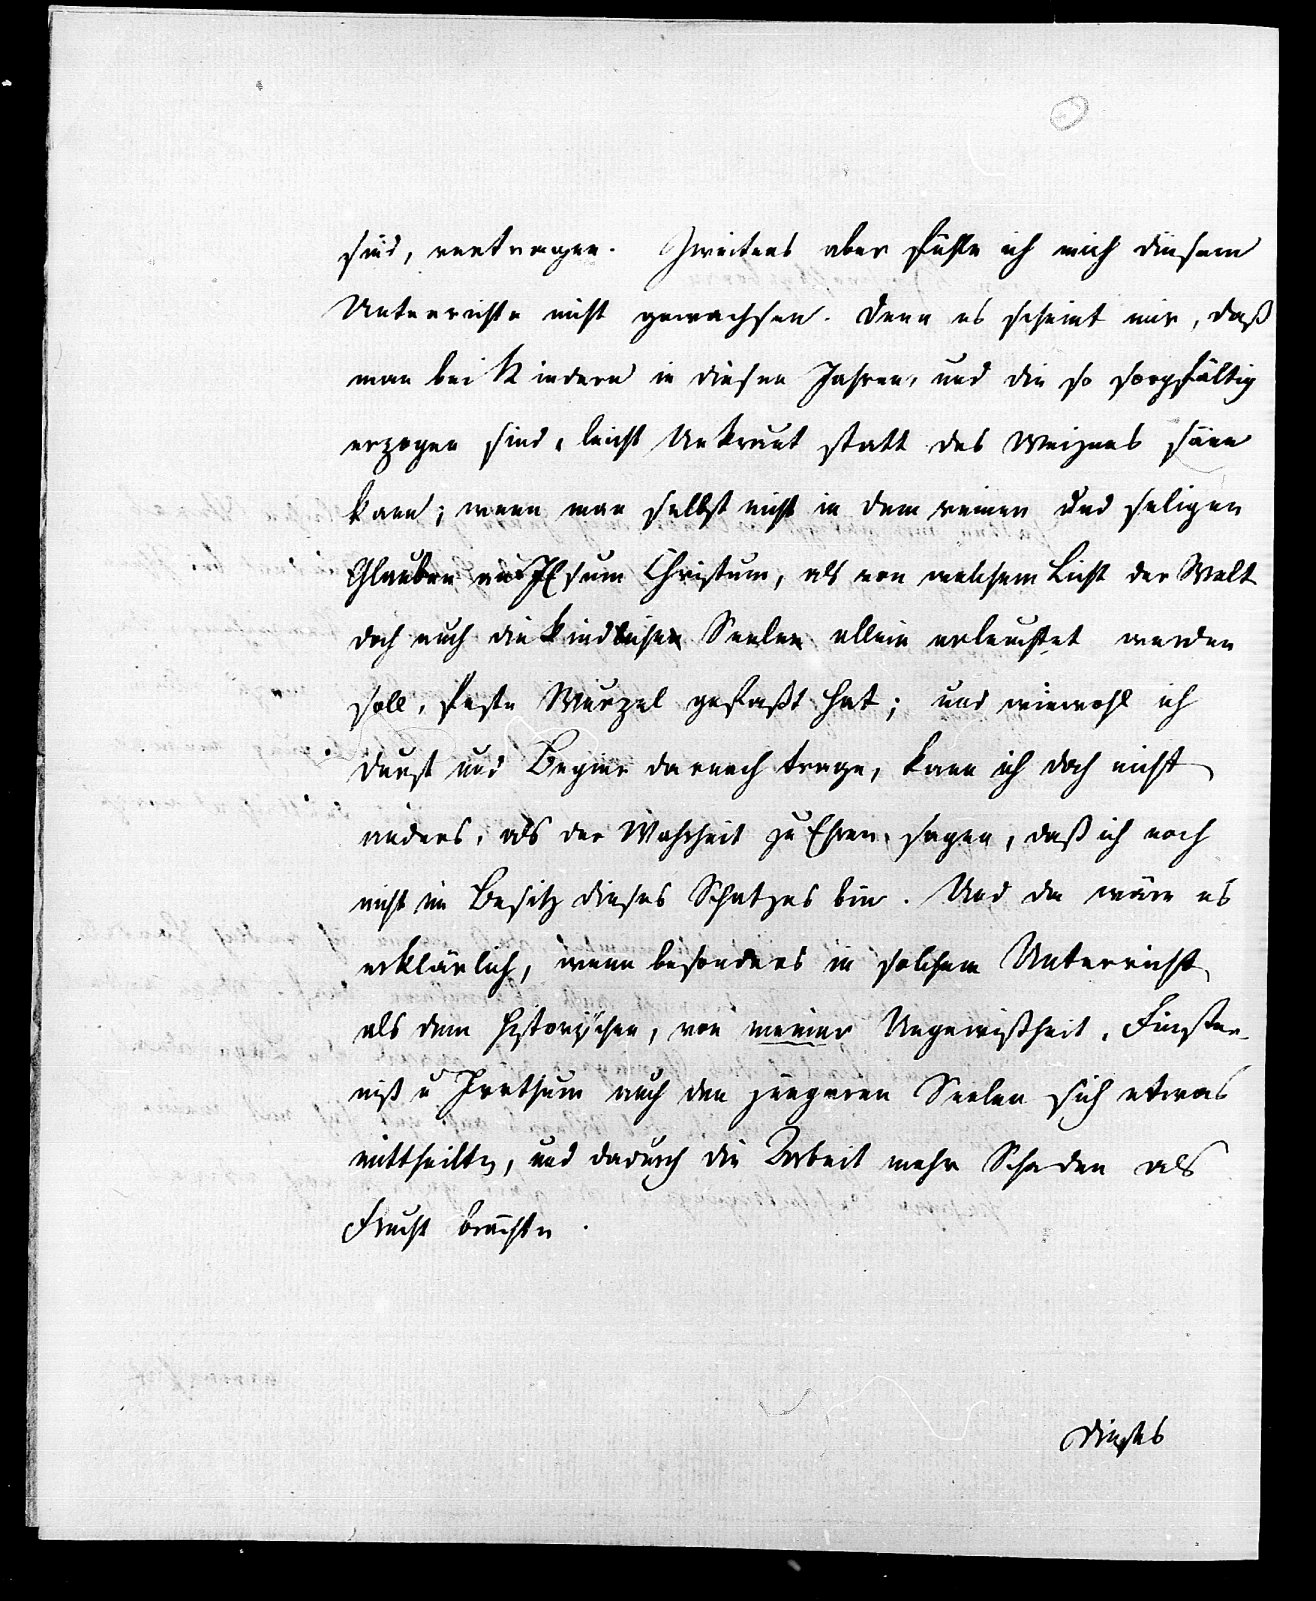 sind, vertragen. Zweitens aber fühle ich mich diesem
Unterrichte nicht gewachsen. Denn es scheint mir, daß
man bei Kindern in diesen Jahren, und die so sorgfältig
erzogen sind, leicht Unkraut statt des Weizens säen
kann; wenn man selbst nicht in dem reinen und seligen
Glauben an JEsum Christum, als von welchem Licht der Welt
doch auch die kindlichen Seelen allein erleuchtet werden
soll, feste Wurzel gefaßt hat; und wiewohl ich
Durst und Begier darnach trage, kann ich doch nicht
anders, als der Wahrheit zu Ehren, sagen, daß ich noch
nicht im Besitz dieses Schatzes bin. Und da wäre es
erklärlich, wenn besonders in solchem Unterricht
als dem historischen, von meiner Ungewißheit, Finster-
niß u Irrthum auch den jüngeren Seelen sich etwas
mittheilte, und dadurch die Arbeit mehr Schaden als
Frucht brächte.
Dieses